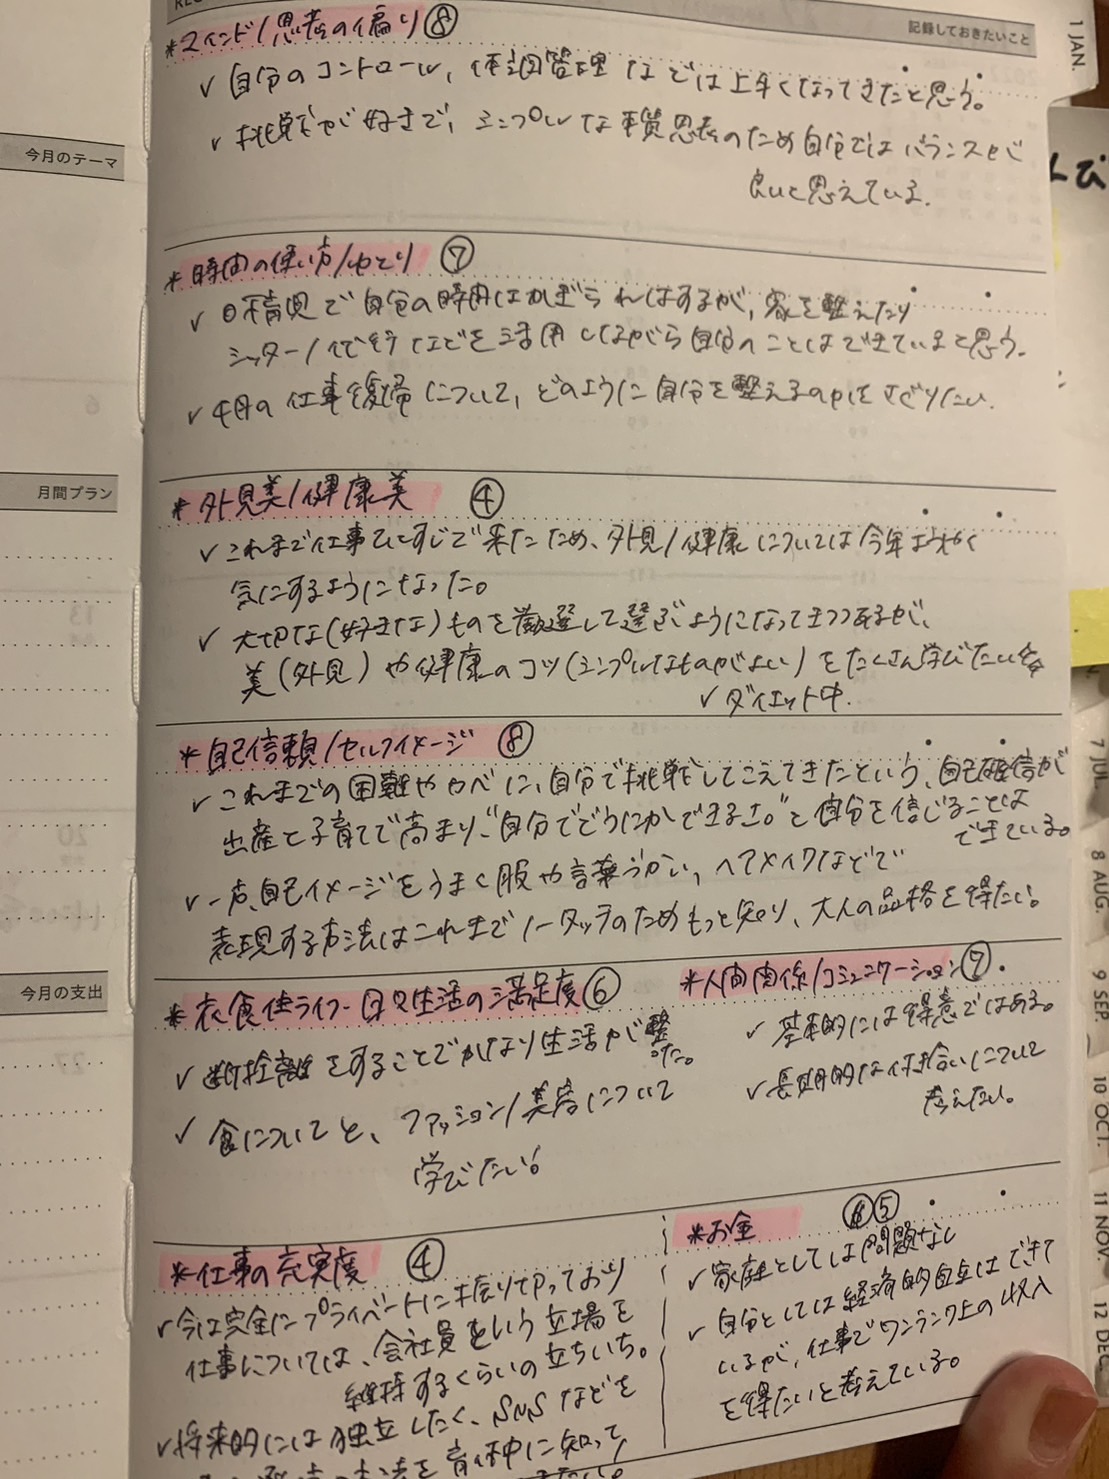 記録しておきたいこと
*マインド/思考の偏り ⑧
✓ 自分のコントロール、体調管理などでは上手くなってきたと思う。
✓ 挑戦が好きで、シンプルな本質思考のため自分ではバランスが
良いと思えている。
*時間の使い方/ゆとり ⑦
✓ 日々育児で自分の時間はかぎられはするが、家を整えたり
シッター/イモトなどを活用しながら自分のことはできていると思う。
✓ 4月の仕事復帰について、どのように自分を整えるのかはさぐりたい。
*外見美/健康美 ④
✓ これまで仕事ひとすじで来たため、外見/健康については今年ようやく
気にするようになった。
✓ 大切な(好きな)ものを厳選して選ぶようになってきつつあるが、
美(外見)や健康のコツ(シンプルなものがよい)をたくさん学びたい
✓ ダイエット中.
*自己信頼/セルフイメージ ⑧
✓ これまでの困難やカベに、自分で挑戦してこえてきたという、自己確信が
出産と子育てで高まり、"自分でどうにかできるさ。"と自分を信じることは
できている。
✓ 一方、自己イメージをうまく服や言葉づかい、ヘアメイクなどで
表現する方法はこれまでノータッチのためもっと知り、大人の品格を得たい。
*衣食住ライフ-日々生活の満足度 ⑥
✓ 断捨離をすることでかなり生活が整
った。
✓ 食についてと、ファッション/美容について
学びたい!
*人間関係/コミュニケーション ⑦
✓ 基本的には得意ではある。
✓ 長期的な付き合いについて
考えたい。
*仕事の充実度 ④
✓ 今は完全にプライベートに振りやっており
仕事については、会社員という立場を
維持するくらいの立ちいち。
✓ 将来的には独立したく、SNSなどを
方法を育休中に知って
*お金 ⑤
✓ 家庭としては問題なし
✓ 自分としては経済的自立はできて
いるが、仕事でワンランク上の収入
を得たいと考えている。
今月のテーマ
月間プラン
今月の支出
6
13
20
27
1 JAN.
7 JUL
8 AUG.
9 SEP.
10 OCT.
11 NOV.
12 DEC.